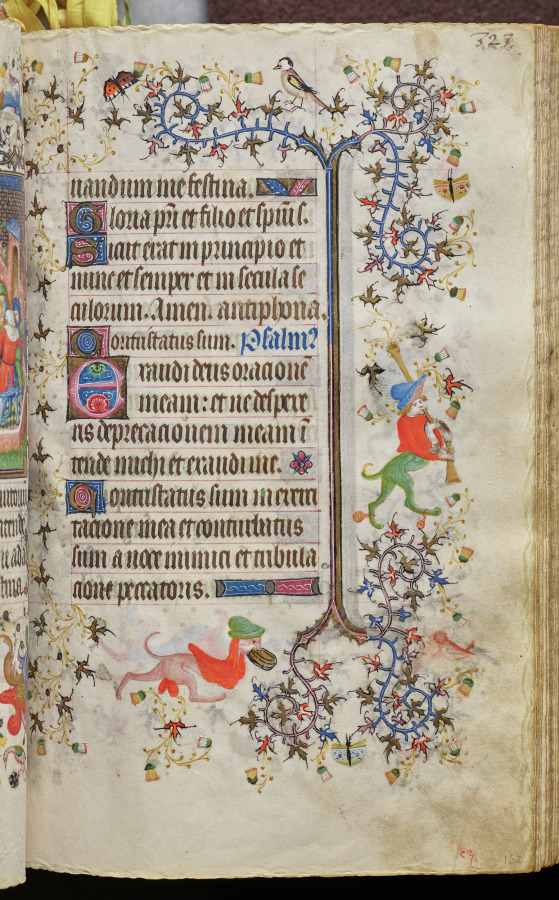 327.
uandum me festina.
Gloria pri et filio et spiui s.
Sicut erat in principio et
nunc et semper et in secula se
culorum. Amen. antiphona.
Contristatus sum. Psalm9
Exaudi deus oracionē
meam: et ne despexe
ris deprecacionem meam ī
tende michi et exaudi me.
Contristatus sum in exerci
tacione mea et conturbatus
sum a uoce inimici et tribula
cione peccatoris.
162